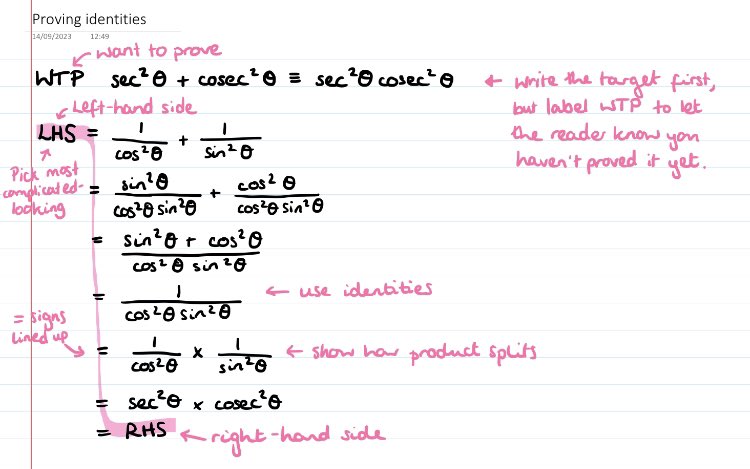 Proving identities
14/09/2023 12:49
want to prove
WTP sec²θ + cosec²θ ≡ sec²θ cosec²θ
← write the target first,
but label WTP to let
the reader know you
haven't proved it yet.
Left-hand side
LHS = 1/cos²θ + 1/sin²θ
Pick most
complicated-
looking
= sin²θ/cos²θ sin²θ + cos²θ/cos²θ sin²θ
= sin²θ + cos²θ/cos²θ sin²θ
= 1/cos²θ sin²θ ← use identities
= signs
lined up
= 1/cos²θ × 1/sin²θ ← show how product splits
= sec²θ × cosec²θ
= RHS ← right-hand side